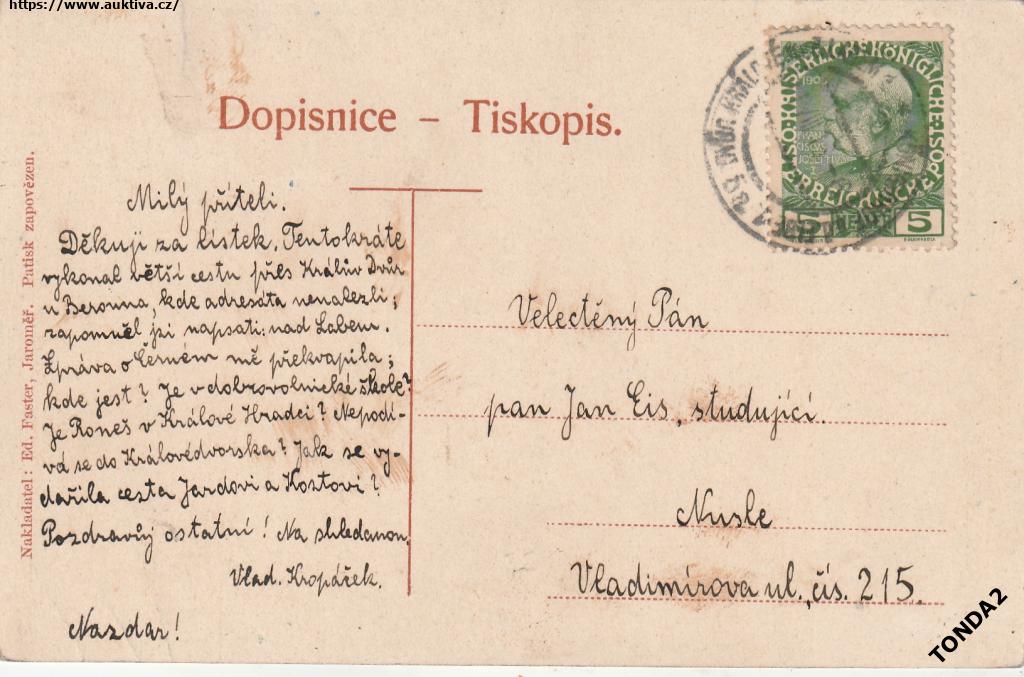 https://www.auktiva.cz/
Dopisnice – Tiskopis.
Nakladatel: Ed. Faster, Jaroměř. Patisk zapovězen.
Milý příteli.
Děkuji za lístek. Tentokráte
vykonal větší cestu přes Králův Dvůr
u Berouna, kde adresáta nenalezli;
zapomněl jsi napsati: nad Labem.
Zpráva o Černém mě překvapila;
kde jest? Je v dobrovolnické škole?
Je Roneš v Králové Hradci? Nepodí-
vá se do Královédvorska? Jak se vy-
dařila cesta Jardovi a Kostovi?
Pozdravůj ostatní! Na shledanou.
Vlad. Kropáček.
Nazdar!
KAISERLICHE KÖNIGLICHE POST
ÖSTERREICHISCHE
FRAN
CISCUS
JOSEPHUS
5 5
DVŮR KRÁLOVÉ
Velectěný Pán
pan Jan Eis, studující.
Nusle
Vladimírova ul., čís. 215.
TONDA2